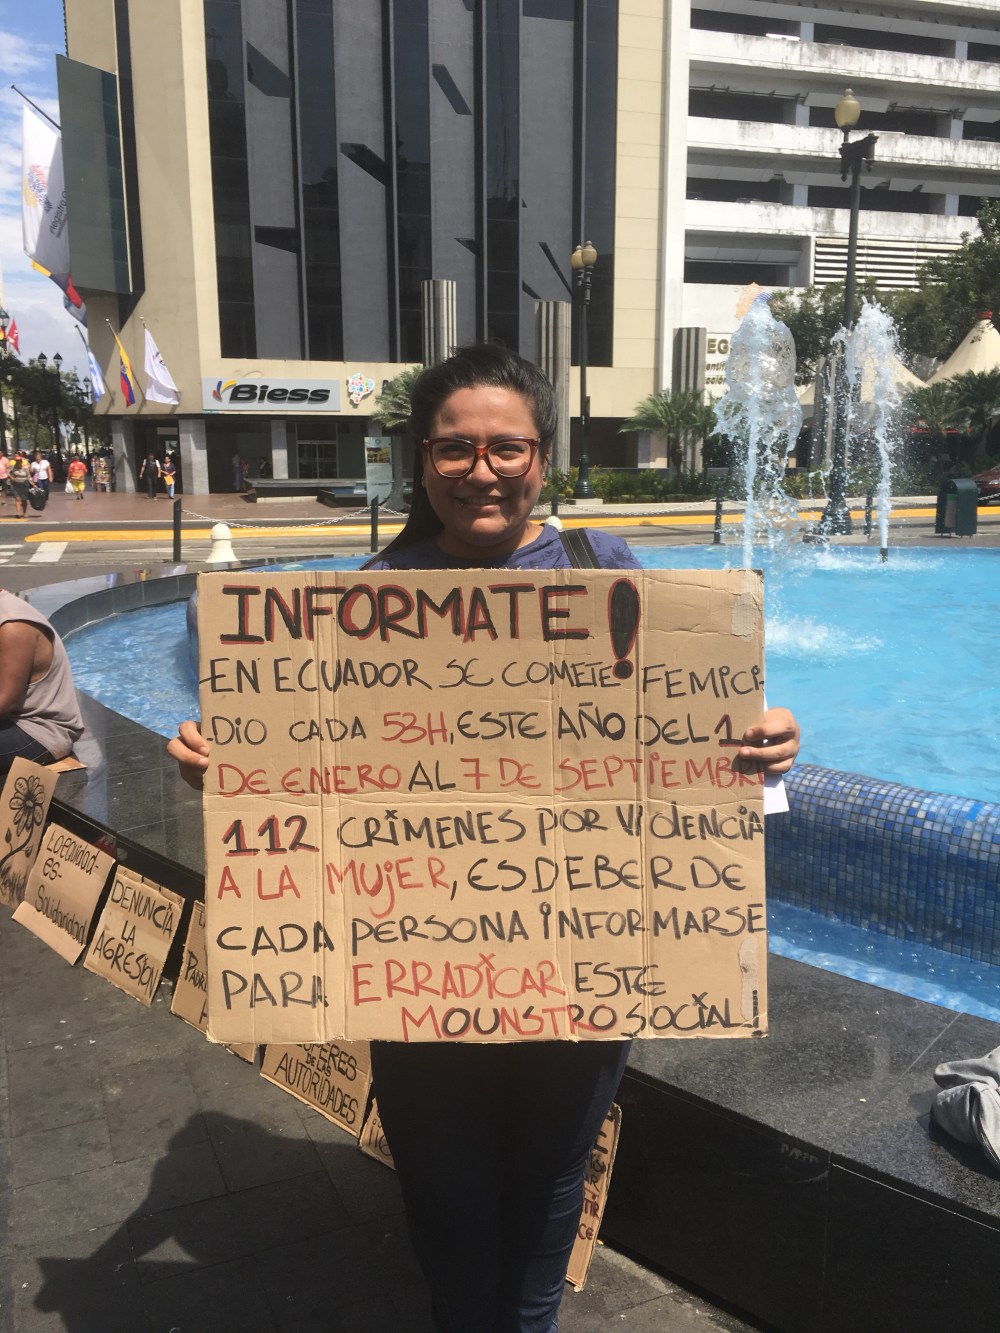 Biess
EG
INFORMATE!
EN ECUADOR SE COMETE FEMICI-
DIO CADA 53H, ESTE AÑO DEL 1
DE ENERO AL 7 DE SEPTIEMBRE
112 CRIMENES POR VIOLENCIA
A LA MUJER, ES DEBER DE
CADA PERSONA INFORMARSE
PARA ERRADICAR ESTE
MOUNSTRO SOCIAL!
La equidad
es-
Solidaridad
DENUNCIA
LA
AGRESIÓN
DE LAS
AUTORIDADES